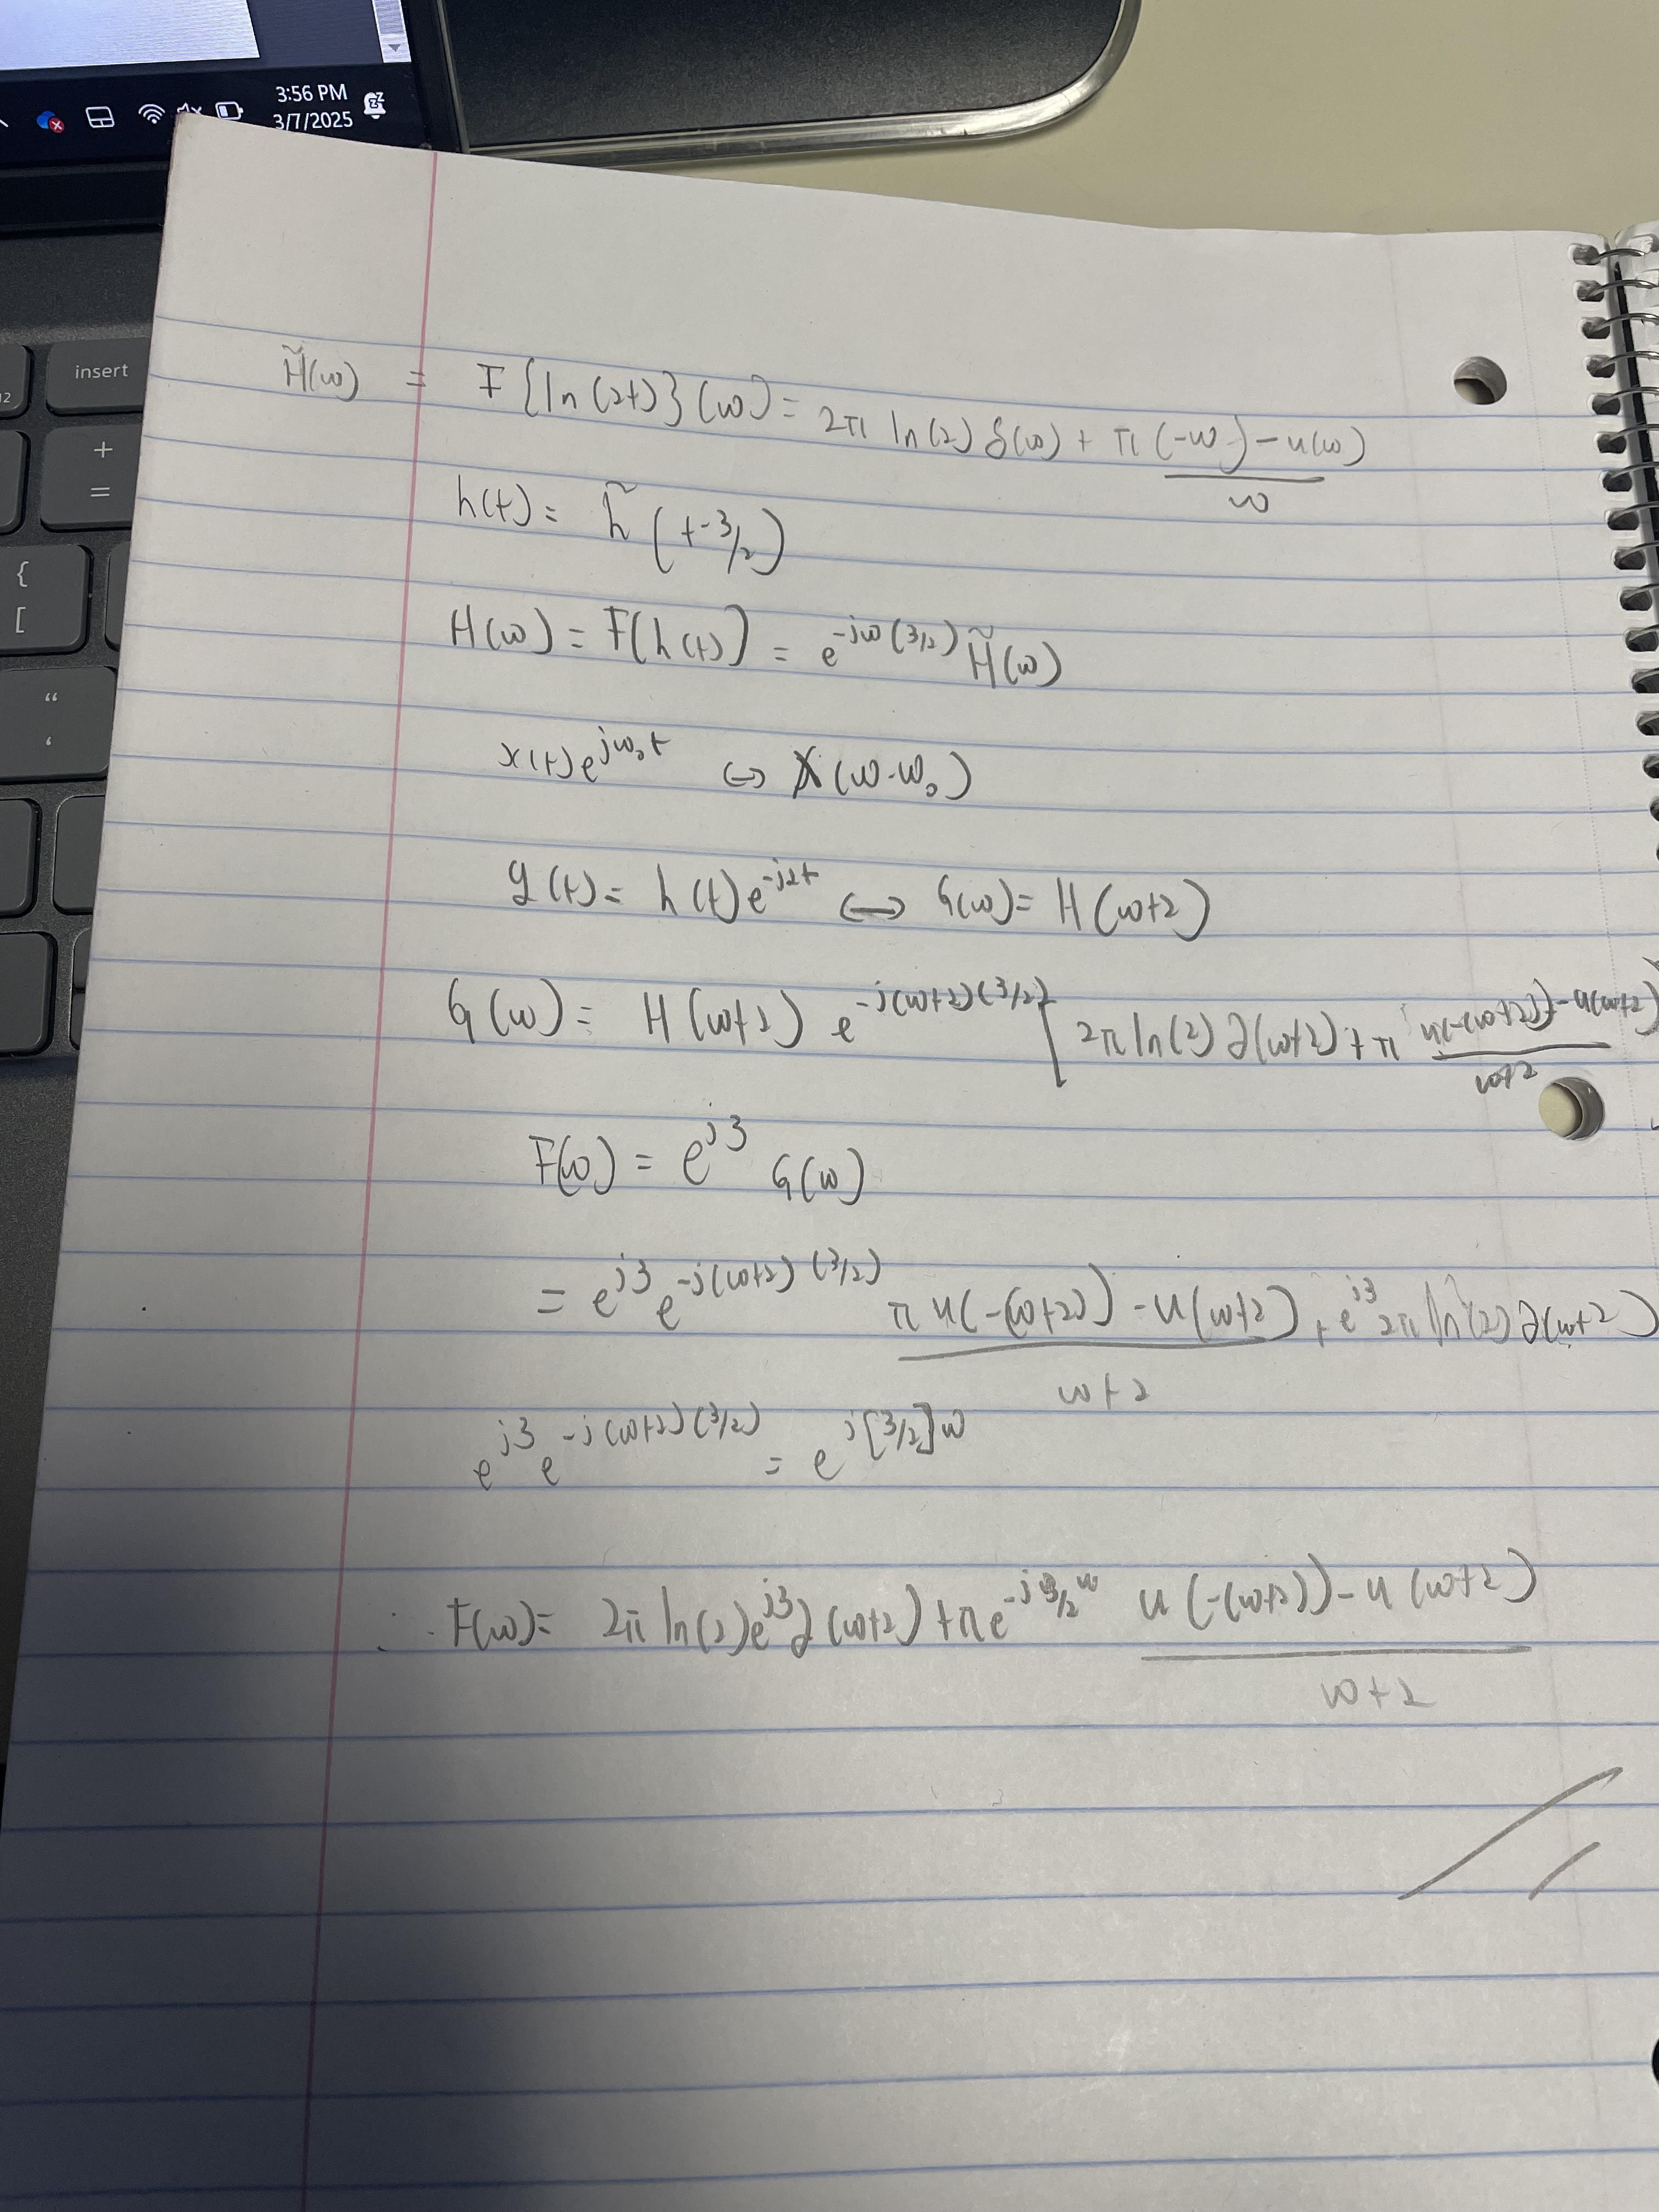 3:56 PM
3/7/2025
insert
+
=
{
[
“
‘
H̃(ω) = F{ln(2t)}(ω) = 2π ln(2) δ(ω) + π (-ω) - u(ω) / ω
h(t) = h̃(t-3/2)
H(ω) = F(h(t)) = e^{-jω(3/2)} H̃(ω)
x(t)e^{jω₀t} ⇔ X(ω-ω₀)
g(t) = h(t)e^{-j2t} ⇔ G(ω) = H(ω+2)
G(ω) = H(ω+2) e^{-j(ω+2)(3/2)} [2π ln(2) ∂(ω+2) + π u(-(ω+2)) - u(ω+2) / ω+2
F(ω) = e^{j3} G(ω)
= e^{j3} e^{-j(ω+2)(3/2)} π u(-(ω+2)) - u(ω+2) / ω+2 + e^{j3} 2π ln(2) ∂(ω+2)
e^{j3} e^{-j(ω+2)(3/2)} = e^{j[3/2]ω}
∴ F(ω) = 2π ln(2) e^{j3} ∂(ω+2) + π e^{-j3/2 ω} u(-(ω+2)) - u(ω+2) / ω+2